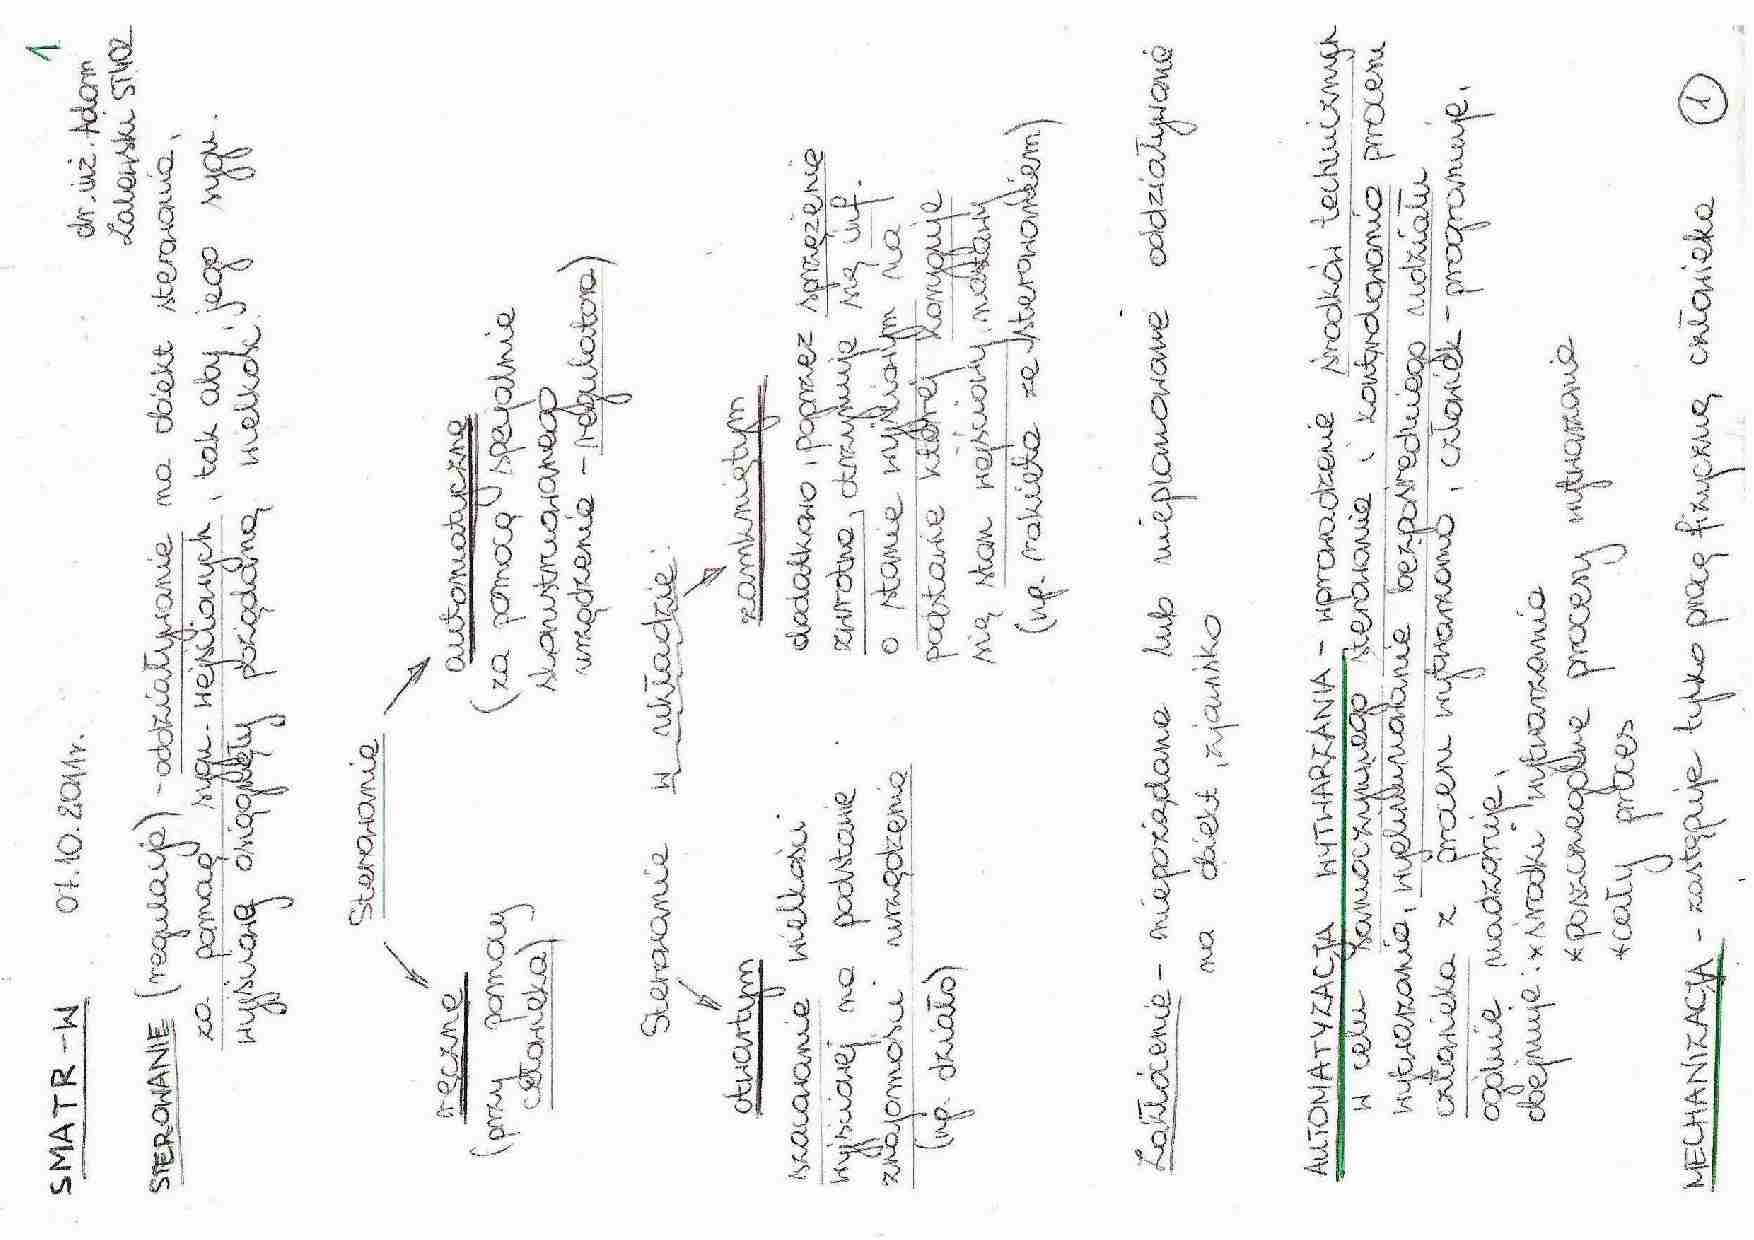 SMATR-W 07.10.2011r. 1
dr. inż. Adam
Zalewski ST402
STEROWANIE (regulacja) - oddziaływanie na obiekt sterowania,
za pomocą sygn. wejściowych, tak aby jego sygn.
wyjściowe osiągnęły pożądaną wielkość.
Sterowanie
ręczne
(przy pomocy
człowieka)
automatyczne
(za pomocą specjalnie
skonstruowanego
urządzenia - regulatora)
Sterowanie w układzie:
otwartym
szacowanie wielkości
wyjściowej na podstawie
znajomości urządzenia
(np. działo)
zamkniętym
dodatkowo, poprzez sprzężenie
zwrotne, otrzymuje się inf.
o stanie wyjściowym na
podstawie której koryguje
się stan wejściowy, nastawy
(np. rakieta ze sterowaniem)
Zakłócenie - niepożądane lub nieplanowane oddziaływanie
na obiekt, zjawisko
AUTOMATYZACJA WYTWARZANIA - wprowadzenie środków technicznych
w celu samoczynnego sterowania i kontrolowania procesu
wytwarzania, wyeliminowanie bezpośredniego udziału
człowieka z procesu wytwarzania, człowiek - programuje,
ogólnie nadzoruje.
obejmuje: * środki wytwarzania
* poszczególne procesy wytwarzania
* cały proces
MECHANIZACJA - zastępuje tylko pracę fizyczną człowieka
1